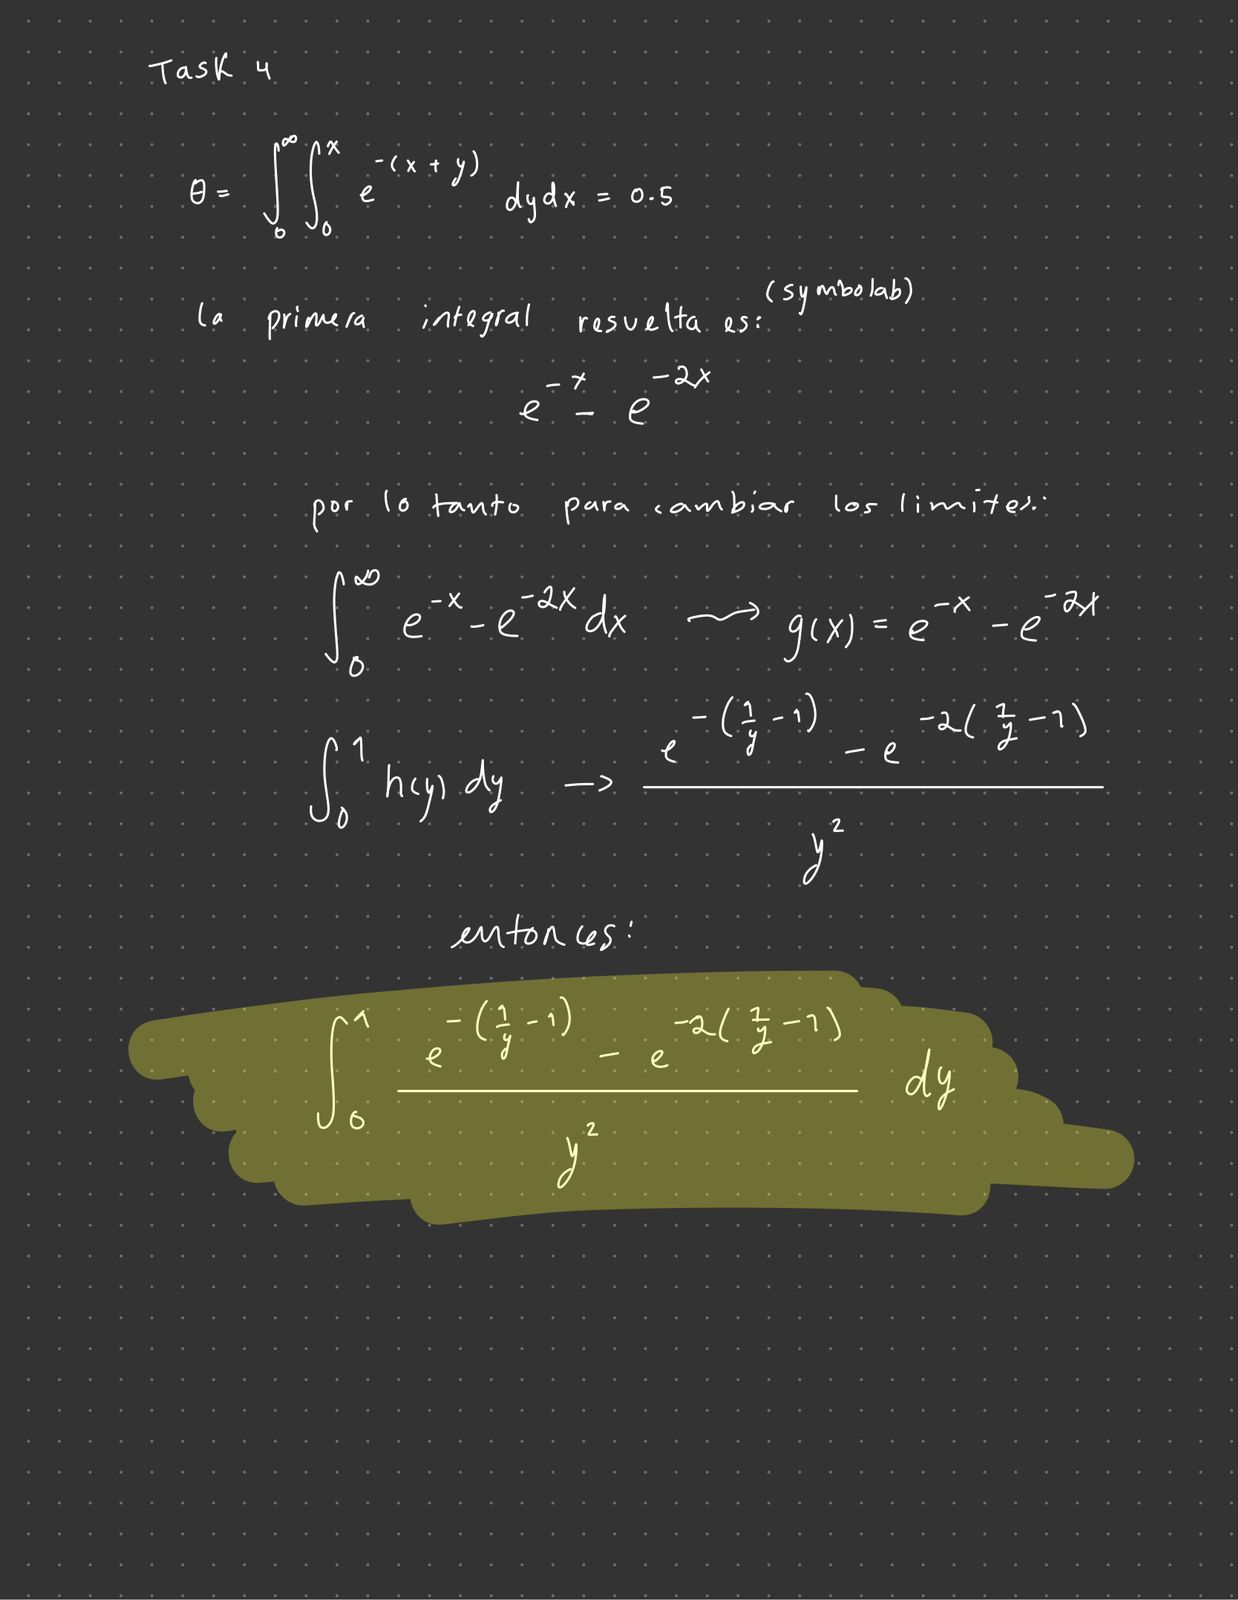 Task 4
θ = ∫₀^∞ ∫₀^x e^{-(x + y)} dydx = 0.5
la primera integral resuelta es: (symbolab)
e^{-x} - e^{-2x}
por lo tanto para cambiar los limites:
∫₀^∞ e^{-x} - e^{-2x} dx ⟿ g(x) = e^{-x} - e^{-2x}
∫₀^1 h(y) dy → (e^{-(1/y - 1)} - e^{-2(1/y - 1)}) / y²
entonces:
∫₀^1 (e^{-(1/y - 1)} - e^{-2(1/y - 1)}) / y² dy